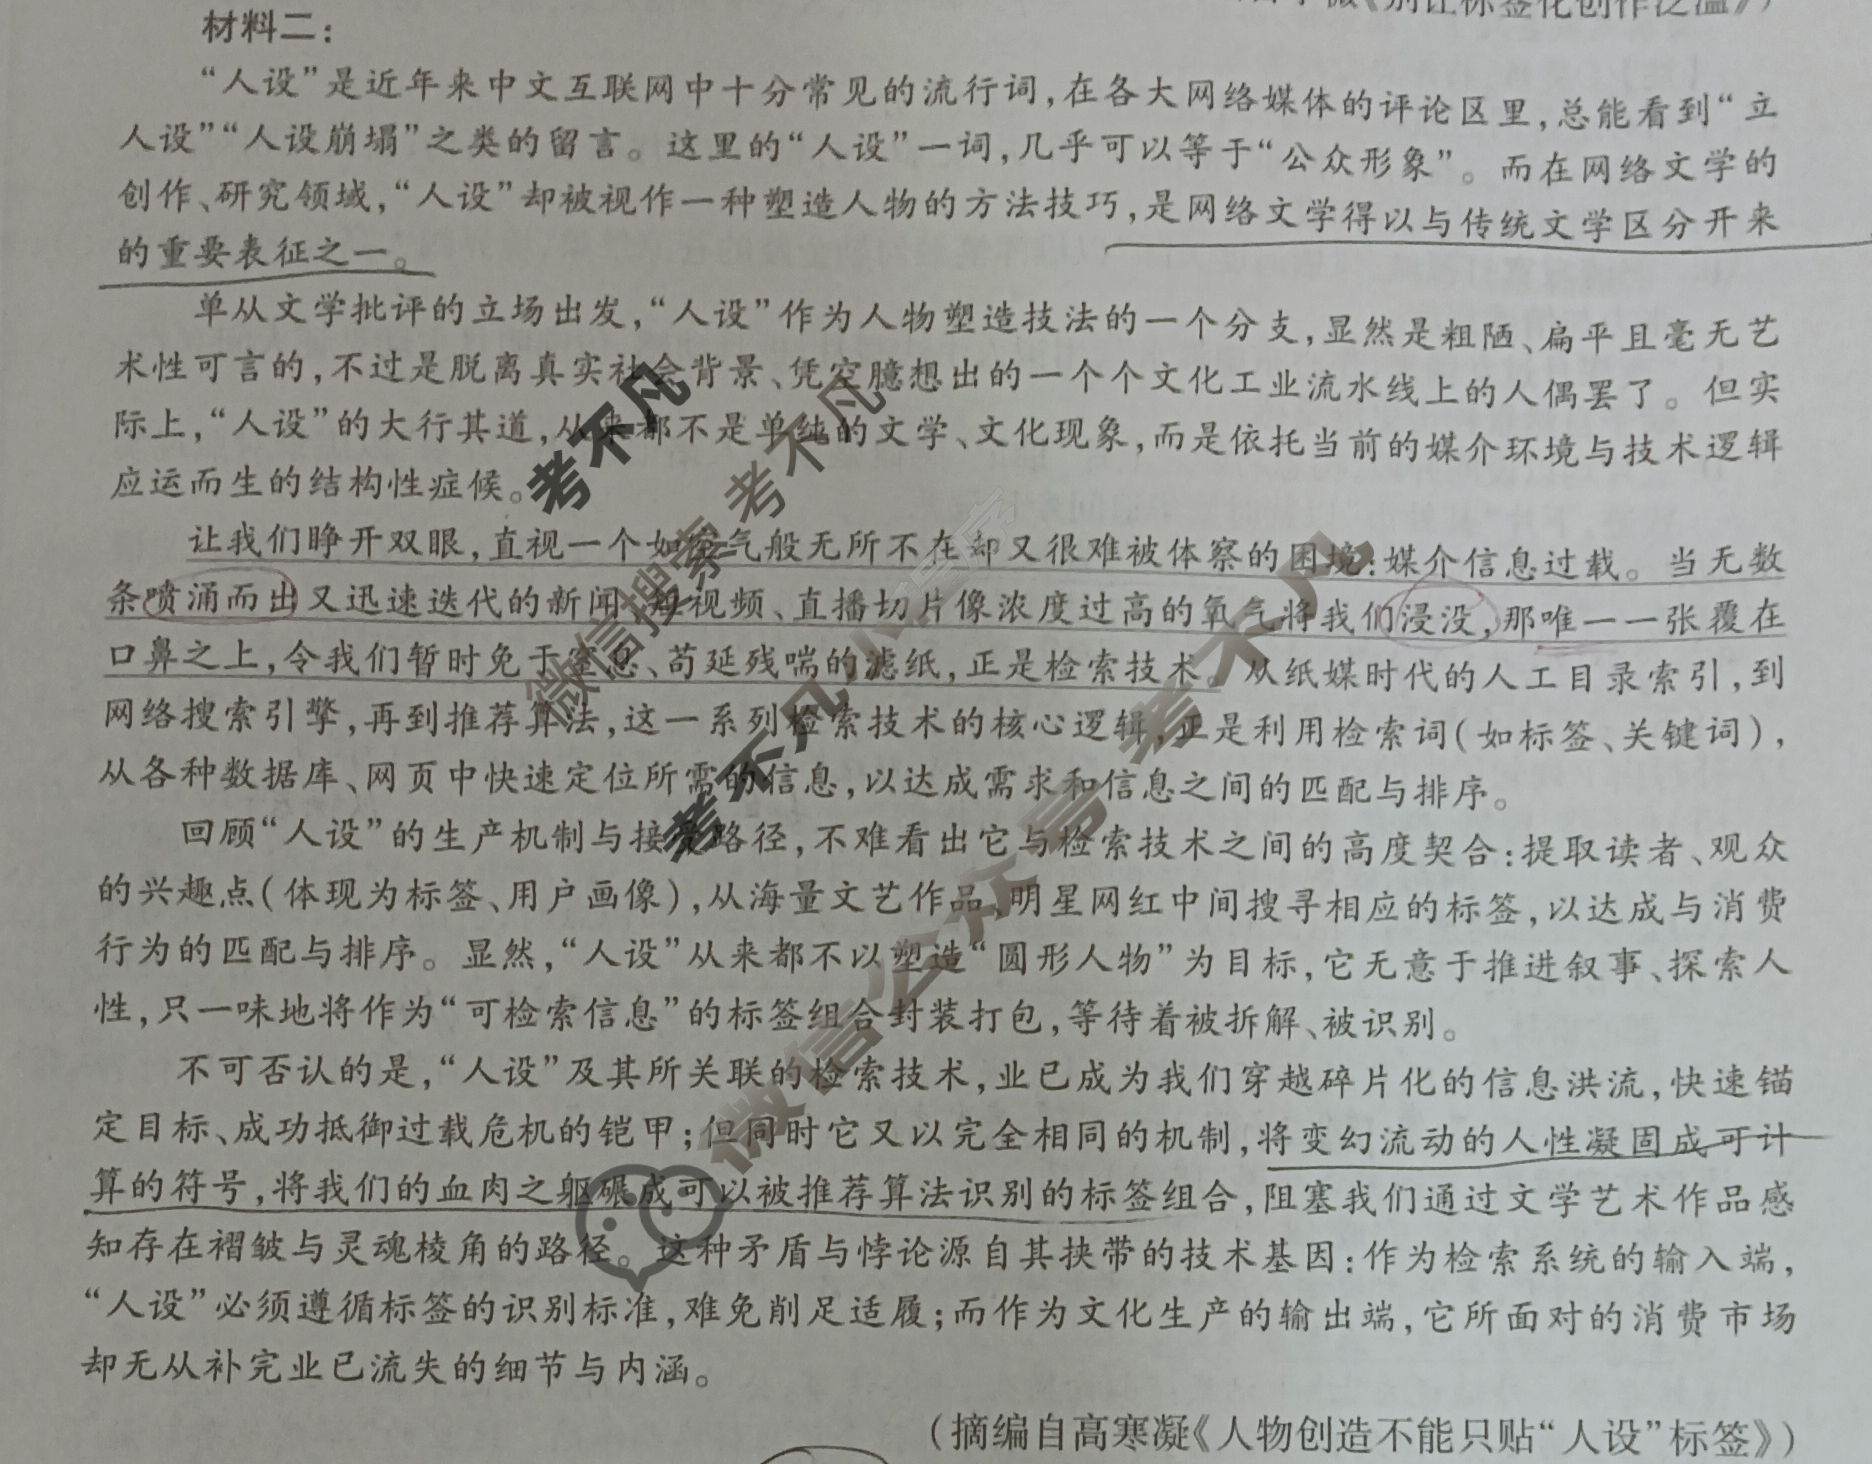 《别让标签化创作泛滥》）
材料二：
“人设”是近年来中文互联网中十分常见的流行词，在各大网络媒体的评论区里，总能看到“立
人设”“人设崩塌”之类的留言。这里的“人设”一词，几乎可以等于“公众形象”。而在网络文学的
创作、研究领域，“人设”却被视作一种塑造人物的方法技巧，是网络文学得以与传统文学区分开来
的重要表征之一。
单从文学批评的立场出发，“人设”作为人物塑造技法的一个分支，显然是粗陋、扁平且毫无艺
术性可言的，不过是脱离真实社会背景、凭空臆想出的一个个文化工业流水线上的人偶罢了。但实
际上，“人设”的大行其道，从来都不是单纯的文学、文化现象，而是依托当前的媒介环境与技术逻辑
应运而生的结构性症候。
让我们睁开双眼，直视一个如空气般无所不在却又很难被体察的困境：媒介信息过载。当无数
条喷涌而出又迅速迭代的新闻、短视频、直播切片像浓度过高的氧气将我们浸没，那唯一一张覆在
口鼻之上，令我们暂时免于窒息、苟延残喘的滤纸，正是检索技术。从纸媒时代的人工目录索引，到
网络搜索引擎，再到推荐算法，这一系列检索技术的核心逻辑，正是利用检索词（如标签、关键词），
从各种数据库、网页中快速定位所需的信息，以达成需求和信息之间的匹配与排序。
回顾“人设”的生产机制与接受路径，不难看出它与检索技术之间的高度契合：提取读者、观众
的兴趣点（体现为标签、用户画像），从海量文艺作品、明星网红中间搜寻相应的标签，以达成与消费
行为的匹配与排序。显然，“人设”从来都不以塑造“圆形人物”为目标，它无意于推进叙事、探索人
性，只一味地将作为“可检索信息”的标签组合封装打包，等待着被拆解、被识别。
不可否认的是，“人设”及其所关联的检索技术，业已成为我们穿越碎片化的信息洪流，快速锚
定目标、成功抵御过载危机的铠甲；但同时它又以完全相同的机制，将变幻流动的人性凝固成可计
算的符号，将我们的血肉之躯碾成可以被推荐算法识别的标签组合，阻塞我们通过文学艺术作品感
知存在褶皱与灵魂棱角的路径。这种矛盾与悖论源自其挟带的技术基因：作为检索系统的输入端，
“人设”必须遵循标签的识别标准，难免削足适履；而作为文化生产的输出端，它所面对的消费市场
却无从补完业已流失的细节与内涵。
（摘编自高寒凝《人物创造不能只贴“人设”标签》）
考不凡
微信搜索 考不凡
考不凡小程序
微信公众号 考不凡